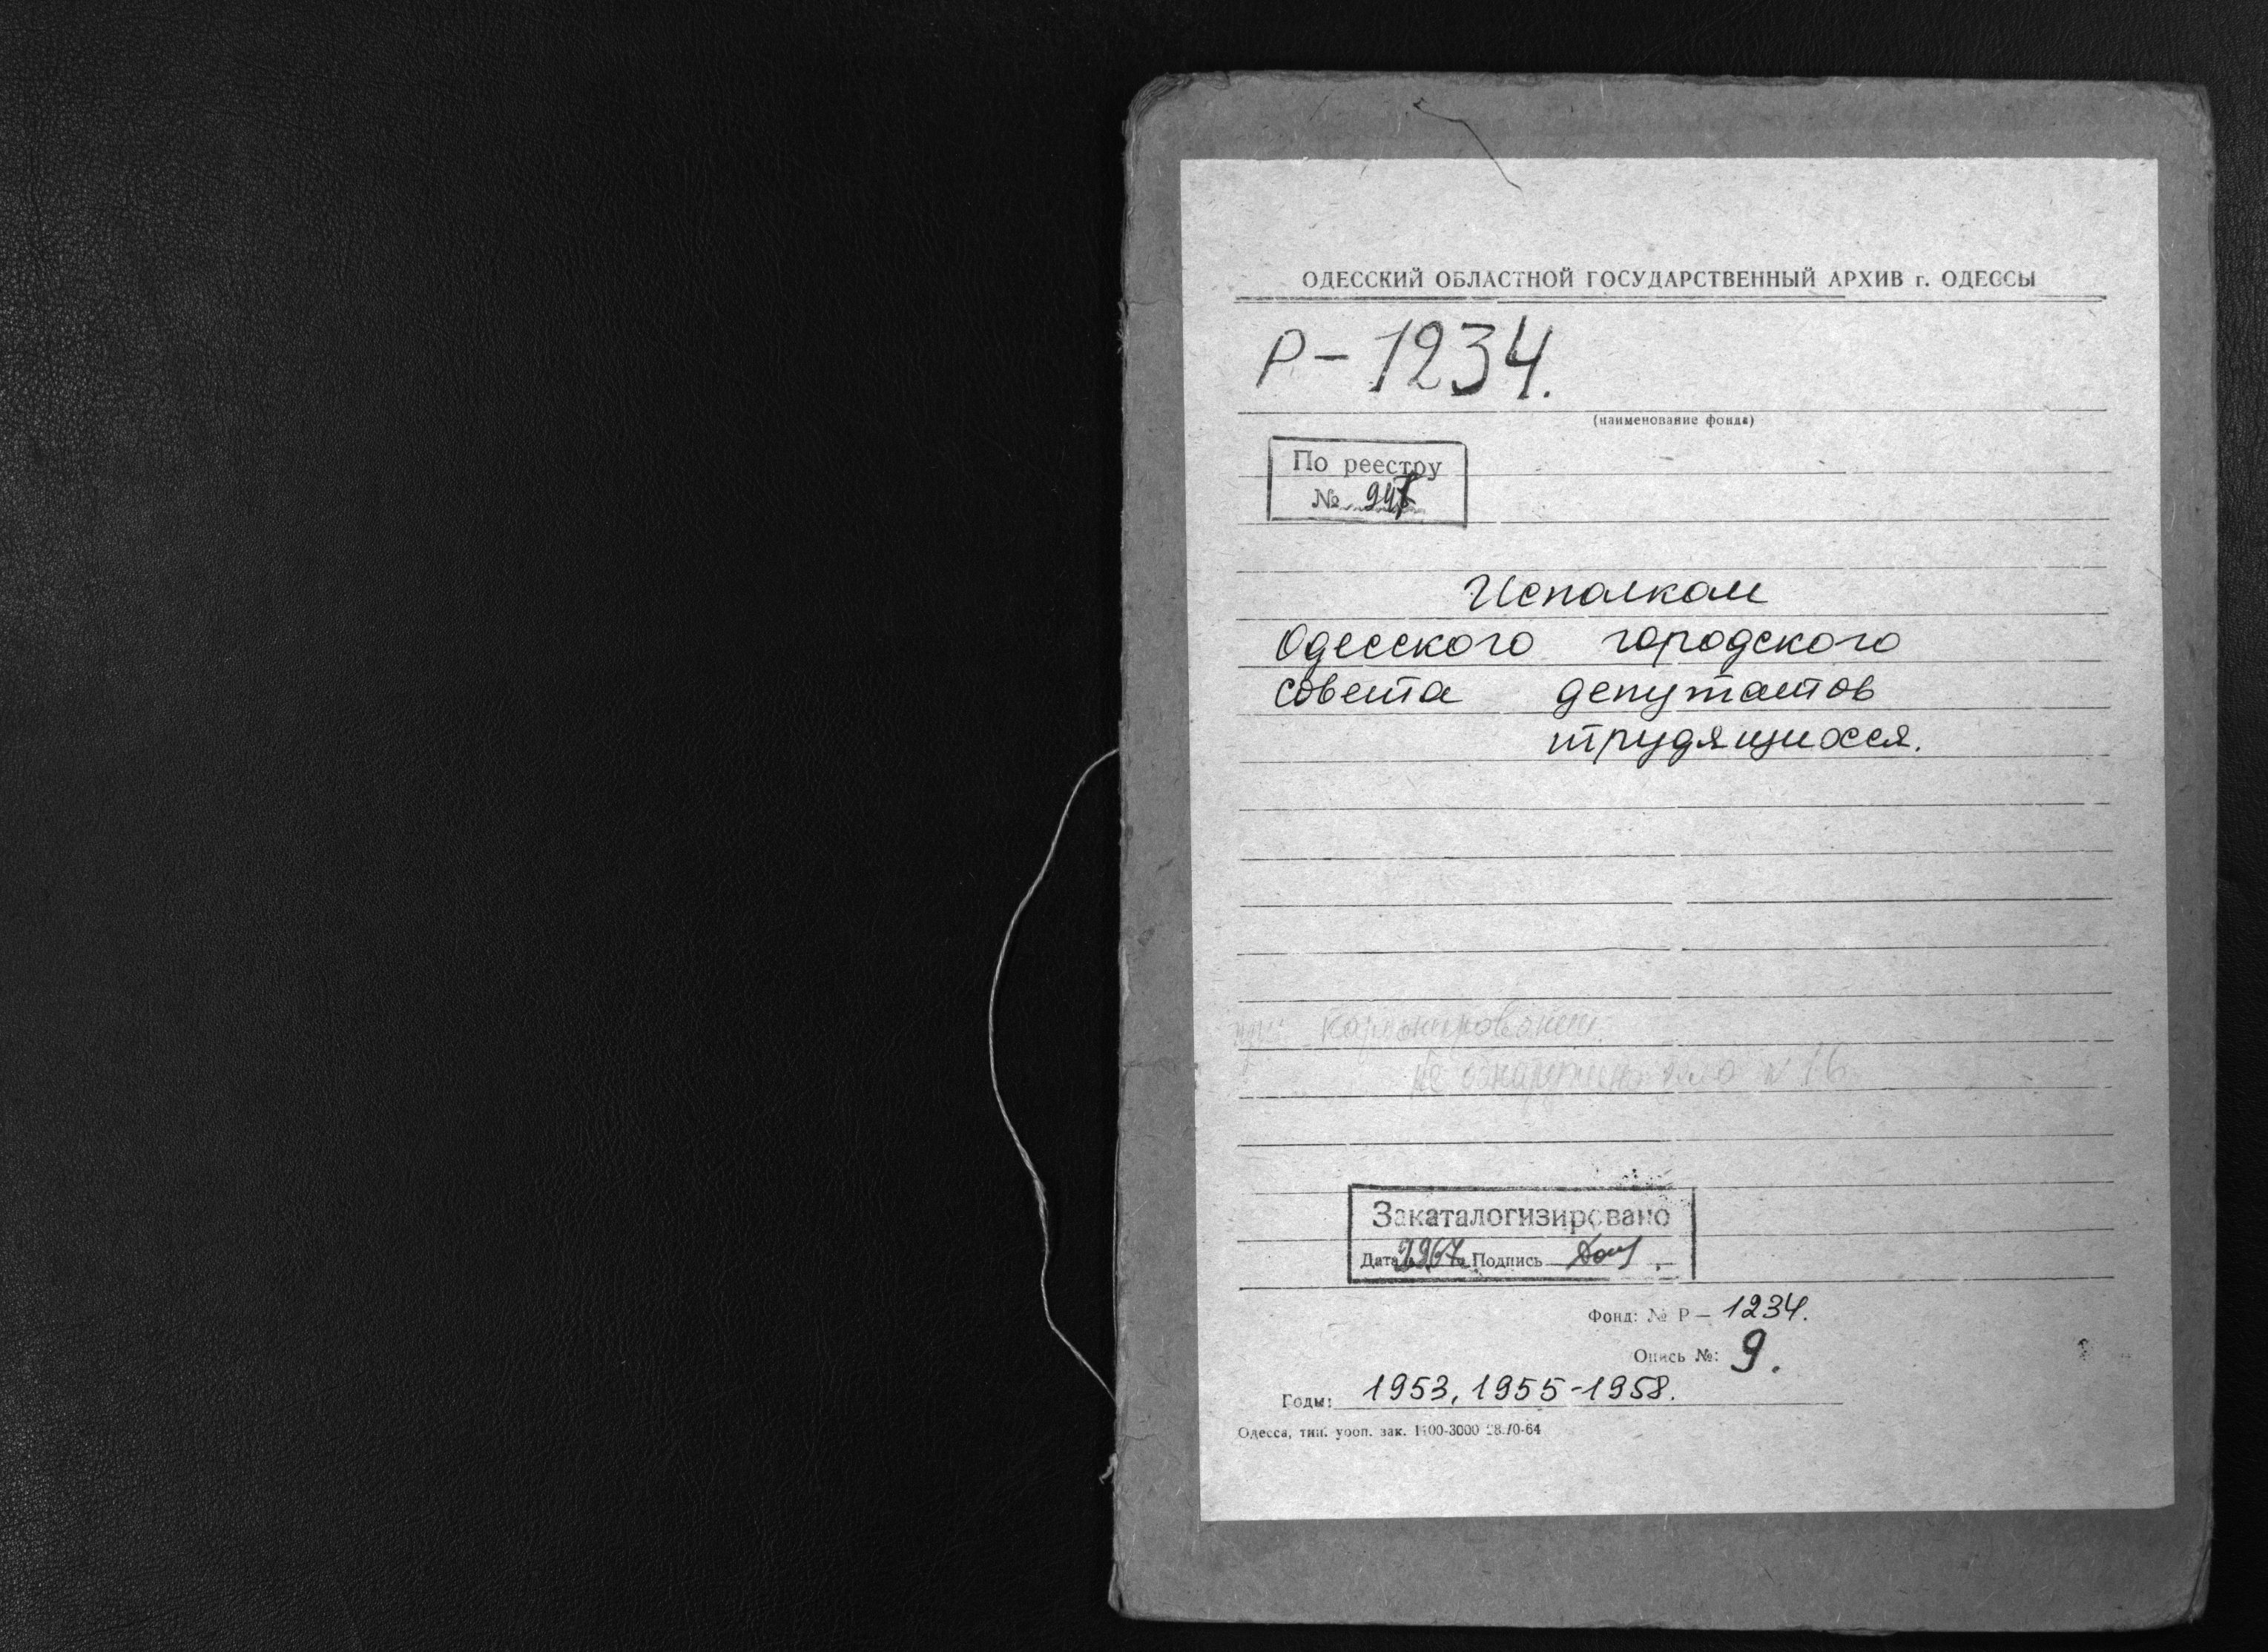 ОДЕССКИЙ ОБЛАСТНОЙ ГОСУДАРСТВЕННЫЙ АРХИВ г. ОДЕССЫ
Р-1234.
(наименование фонда)
По реестру
№
Исполком
Одесского городского
совета депутатов
трудящихся.
не обнаружено дело № 16
Закаталогизировано
Дата Подпись
Фонд: № Р — 1234.
Опись №: 9.
Годы: 1953, 1955-1958.
Одесса, тип. зак.